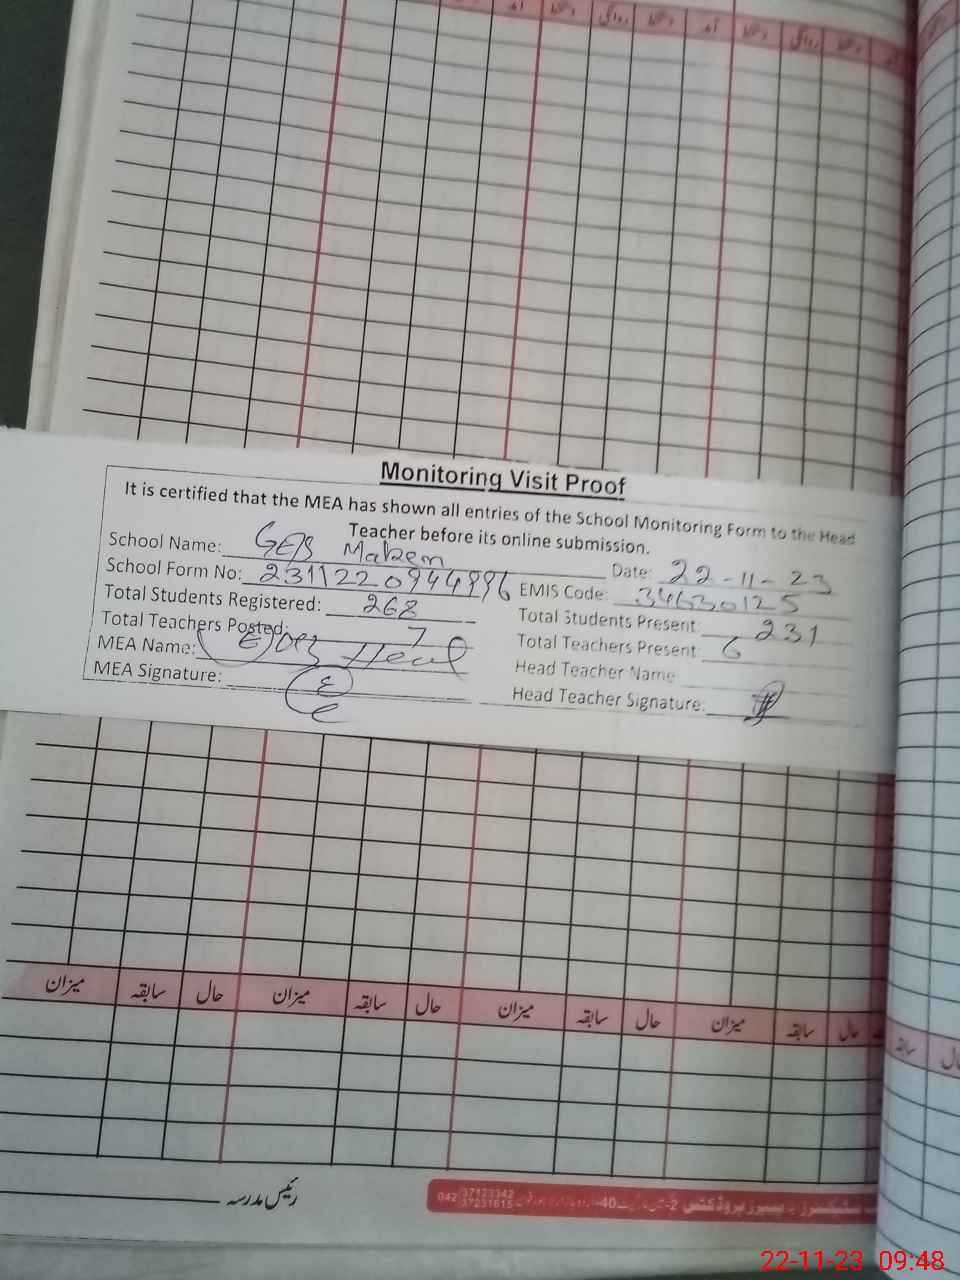 آمد دستخط روانگی دستخط آمد دستخط روانگی دستخط
Monitoring Visit Proof
It is certified that the MEA has shown all entries of the School Monitoring Form to the Head
Teacher before its online submission.
School Name: GES Maken Date: 22-11-23
School Form No: EMIS Code: 34630125
Total Students Registered: 268 Total Students Present: 231
Total Teachers Posted: 7 Total Teachers Present: 6
MEA Name: Head Teacher Name
MEA Signature: Head Teacher Signature:
میزان سابقہ حال میزان سابقہ حال میزان سابقہ حال میزان سابقہ حال
سابقہ حال
رئیس مدرسہ
042 37123342
37231615
22-11-23 09:48